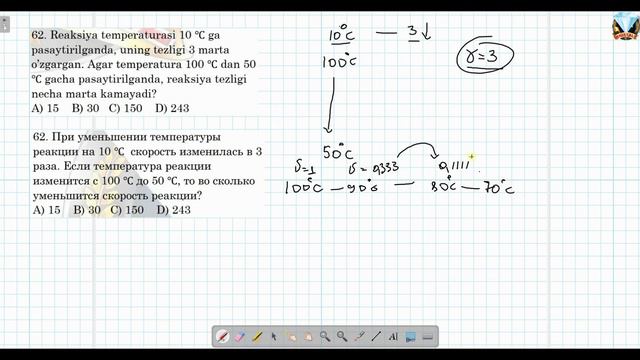 62. Reaksiya temperaturasi 10 ℃ ga
pasaytirilganda, uning tezligi 3 marta
o'zgargan. Agar temperatura 100 ℃ dan 50
℃ gacha pasaytirilganda, reaksiya tezligi
necha marta kamayadi?
A) 15 B) 30 C) 150 D) 243
62. При уменьшении температуры
реакции на 10 ℃ скорость изменилась в 3
раза. Если температура реакции
изменится с 100 ℃ до 50 ℃, то во сколько
уменьшится скорость реакции?
А) 15 В) 30 С) 150 D) 243
10°C — 3↓
γ=3
100°C
50°C
υ=1 υ=0,333 0,1111
100°C — 90°C — 80°C — 70°C